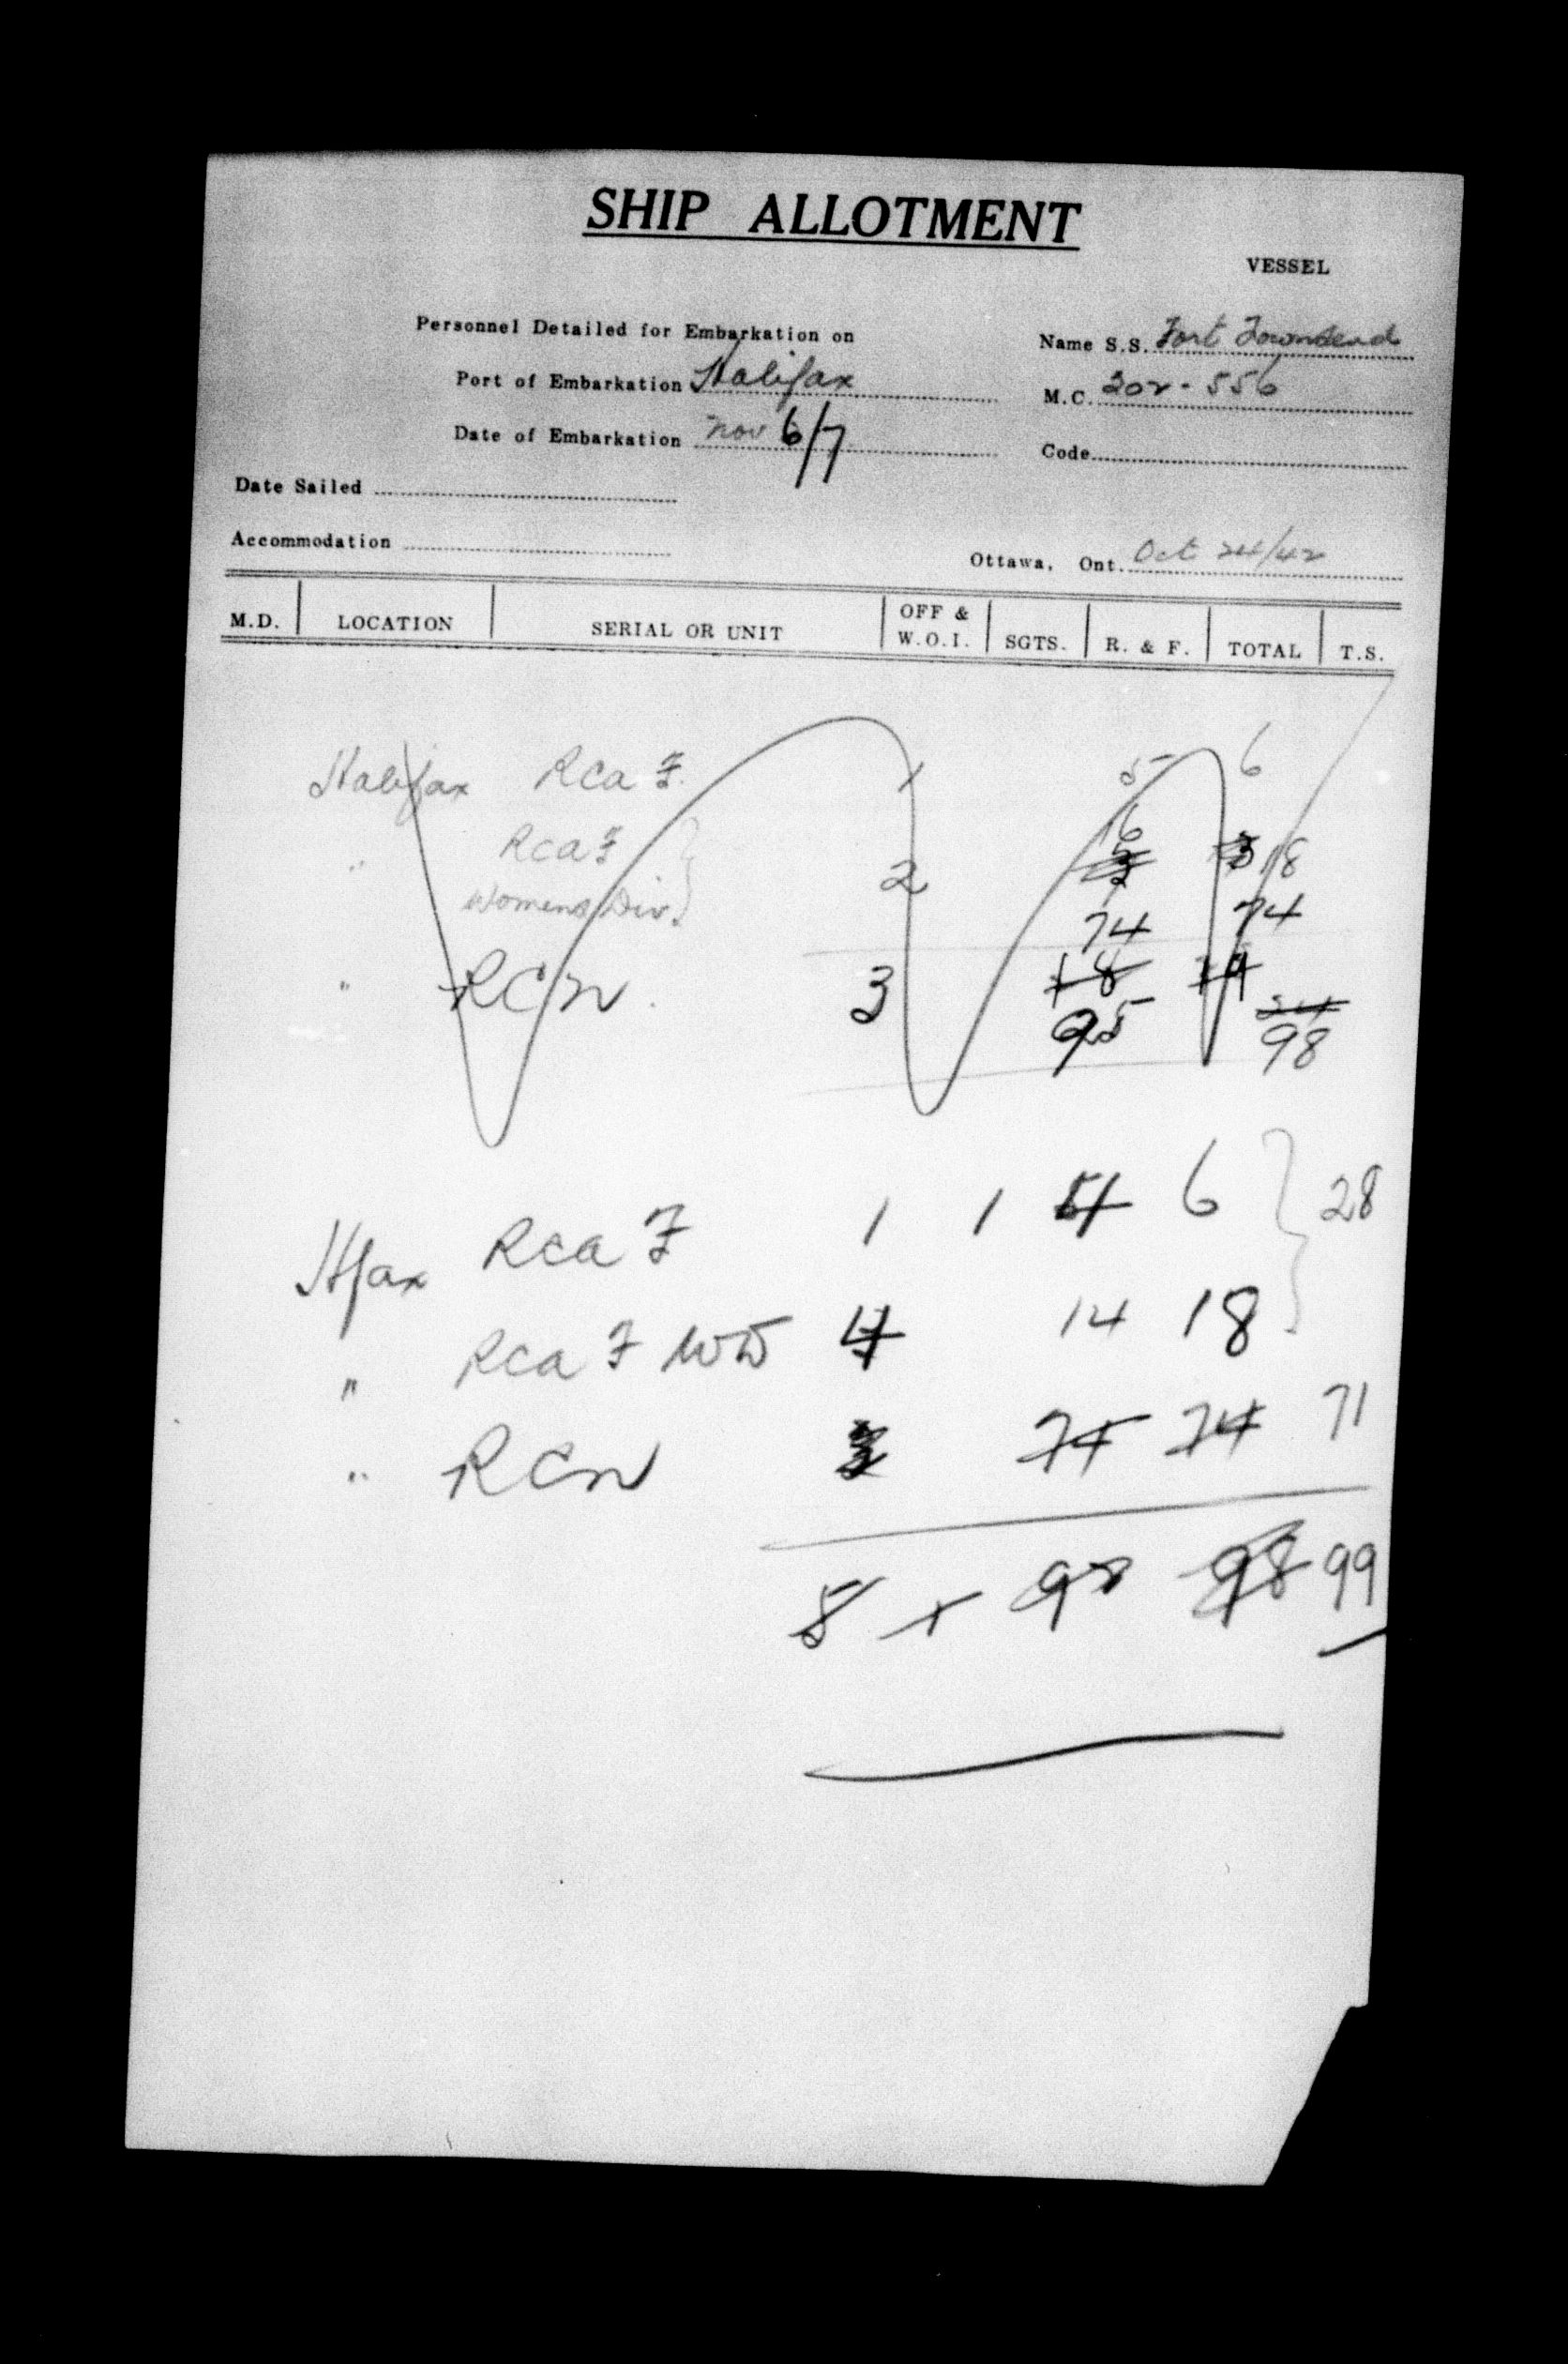 SHIP ALLOTMENT
VESSEL
Personnel Detailed for Embarkation on
Name S.S. Fort Townsend
Port of Embarkation Halifax
M.C. 202 - 556
Date of Embarkation Nov 6/7
Code
Date Sailed
Accommodation
Ottawa, Ont. Oct 24/42
M.D. LOCATION SERIAL OR UNIT OFF & W.O.I. SGTS. R. & F. TOTAL T.S.
Halifax RCAF. 1 5 6
" RCAF 2 16 18
Womens Div.
74 74
" RCN. 3 18 19
24
95 98
Hfax RCAF 1 1 4 6 28
" RCAF WD 4 14 18
" RCN 74 74 71
8 98 99